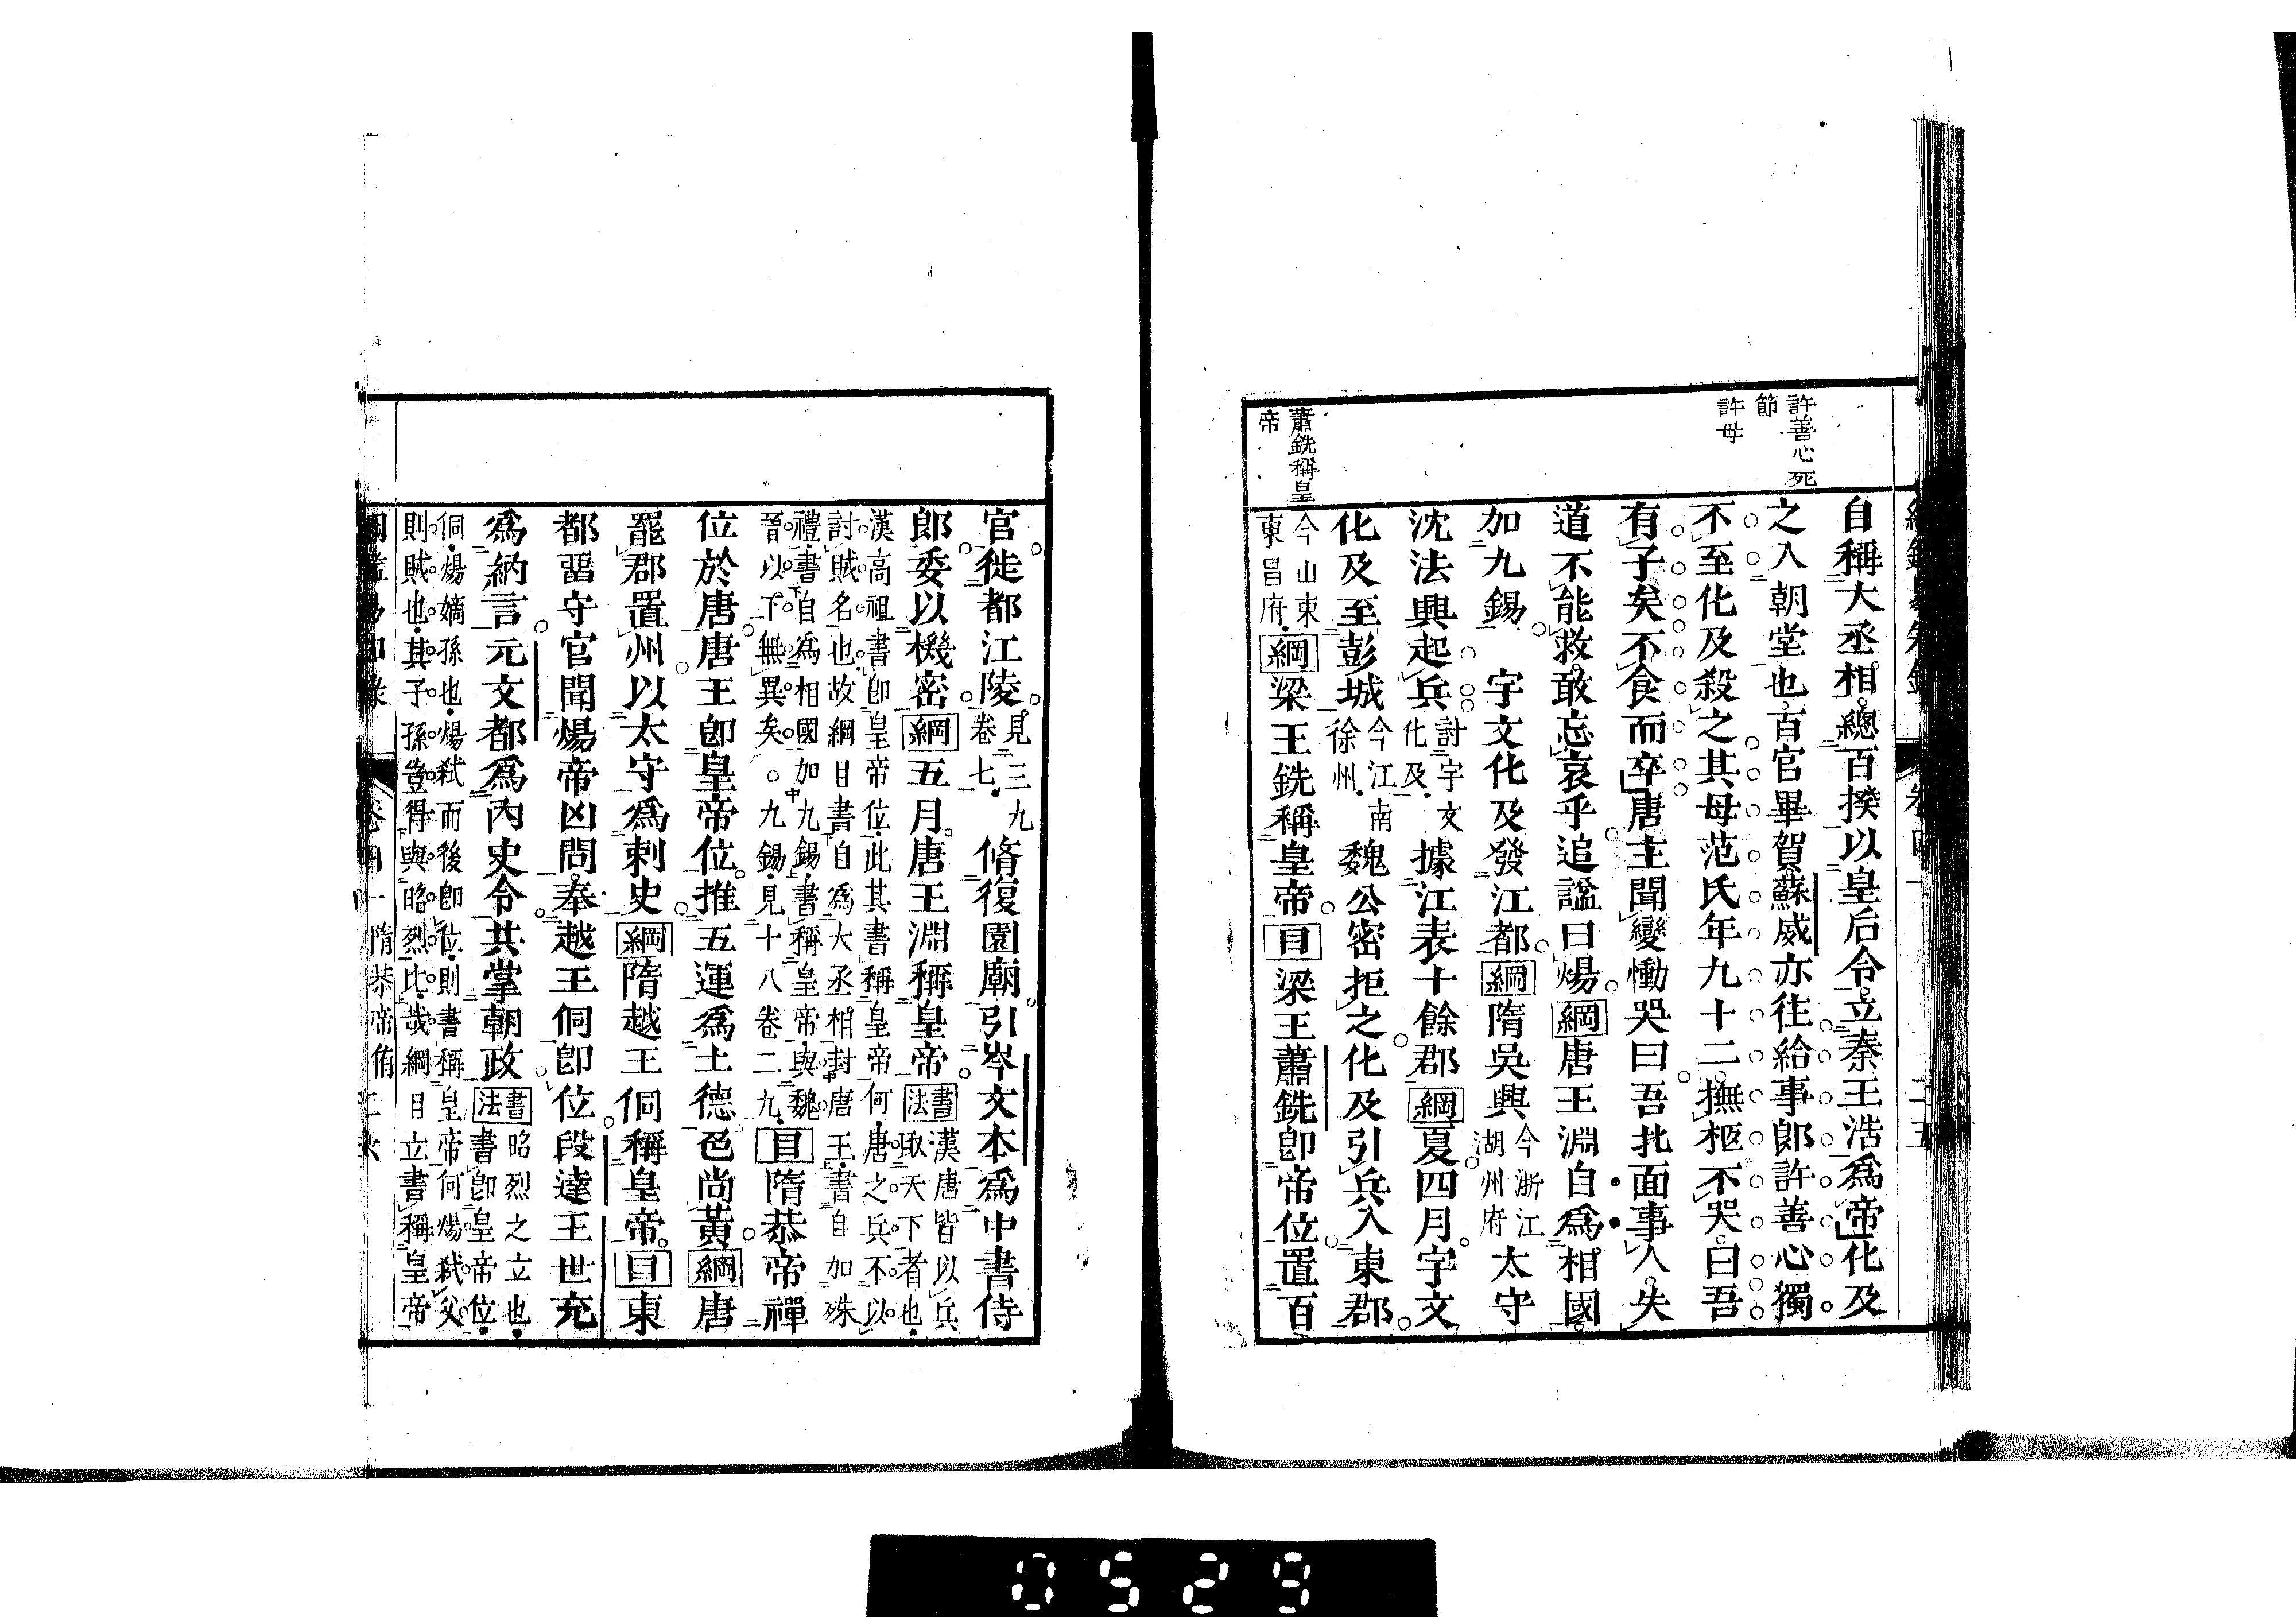 許善心死
節
許母
蕭銑稱皇
帝
自稱大丞相總百揆以皇后令立秦王浩爲帝化及
之入朝堂也百官畢賀蘇威亦往給事郞許善心獨
不至化及殺之其母范氏年九十二撫柩不哭曰吾
有子矣不食而卒唐主聞變慟哭曰吾北面事人失
道不能救敢忘哀乎追謚曰煬綱唐王淵自爲相國
加九錫 宇文化及發江都綱隋吳興今浙江湖州府太守
沈法興起兵討宇文化及據江表十餘郡綱夏四月宇文
化及至彭城今江南徐州魏公密拒之化及引兵入東郡
今山東東昌府綱梁王銑稱皇帝目梁王蕭銑卽帝位置百
官徙都江陵見三九卷七脩復園廟引岑文本爲中書侍
郞委以機密綱五月唐王淵稱皇帝書法漢唐皆以兵取天下者也
漢高祖書卽皇帝位此其書稱皇帝何唐之兵不以
討賊名也故綱目書自爲大丞相封唐王書自加殊
禮書自爲相國加九錫書稱皇帝與魏
晉以下無異矣○九錫見十八卷二九目隋恭帝禪
位於唐唐王卽皇帝位推五運爲土德色尚黃綱唐
罷郡置州以太守爲刺史綱隋越王侗稱皇帝目東
都留守官聞煬帝凶問奉越王侗卽位段達王世充
爲納言元文都爲內史令共掌朝政書法昭烈之立也書卽皇帝位
侗煬嫡孫也煬弒而後卽位則書稱皇帝何煬弒父
則賊也其子孫豈得與昭烈比哉綱目立書稱皇帝
卷四一 隋恭帝侑
0529